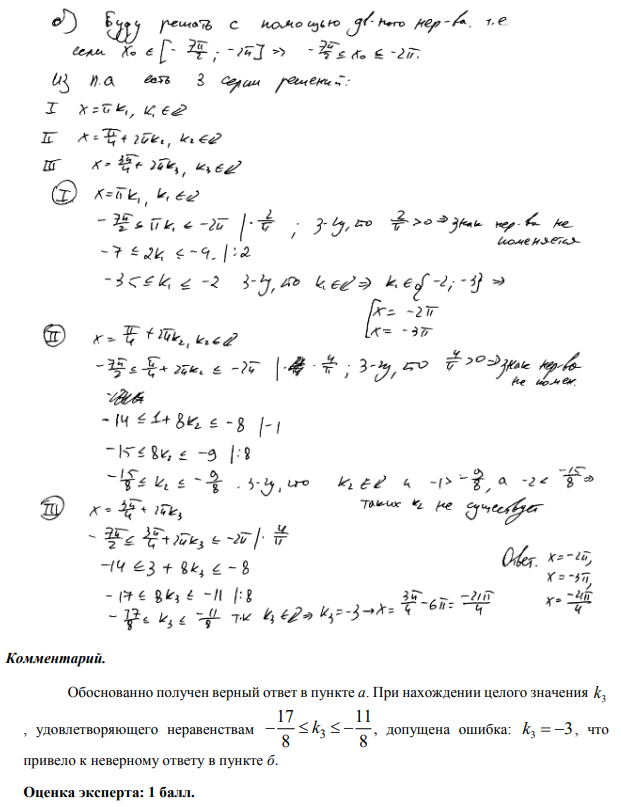 б) Буду решать с помощью дв-ного нер-ва. т.е
если x₀ ∈ [-7π/2; -2π] => -7π/2 ≤ x₀ ≤ -2π.
Из п.а есть 3 серии решений:
I x = πk₁, k₁ ∈ Z
II x = π/4 + 2πk₂, k₂ ∈ Z
III x = 3π/4 + 2πk₃, k₃ ∈ Z
I x = πk₁, k₁ ∈ Z
-7π/2 ≤ πk₁ ≤ -2π |· 2/π ; З-чу, что 2/π > 0 => знак нер-ва не меняется
-7 ≤ 2k₁ ≤ -4. |:2
-3,5 ≤ k₁ ≤ -2 З-чу, что k₁ ∈ Z => k₁ ∈ {-2; -3} =>
[x = -2π
x = -3π
II x = π/4 + 2πk₂, k₂ ∈ Z
-7π/2 ≤ π/4 + 2πk₂ ≤ -2π |· 4/π ; З-чу, что 4/π > 0 => знак нер-ва не помен.
-14 ≤ 1 + 8k₂ ≤ -8 |-1
-15 ≤ 8k₂ ≤ -9 |:8
-15/8 ≤ k₂ ≤ -9/8 . З-чу, что k₂ ∈ Z и -1 > -9/8, а -2 < -15/8 =>
таких k₂ не существует
III x = 3π/4 + 2πk₃
-7π/2 ≤ 3π/4 + 2πk₃ ≤ -2π |· 4/π
-14 ≤ 3 + 8k₃ ≤ -8
-17 ≤ 8k₃ ≤ -11 |:8
-17/8 ≤ k₃ ≤ -11/8 т.к k₃ ∈ Z => k₃ = -3 → x = 3π/4 - 6π = -21π/4
Ответ. x = -2π,
x = -3π,
x = -21π/4
Комментарий.
Обоснованно получен верный ответ в пункте а. При нахождении целого значения k₃
, удовлетворяющего неравенствам -17/8 ≤ k₃ ≤ -11/8, допущена ошибка: k₃ = -3, что
привело к неверному ответу в пункте б.
Оценка эксперта: 1 балл.